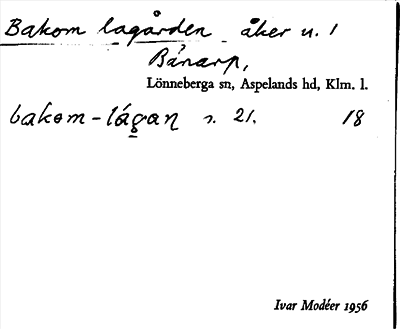 Bakom lagården åker u. 1
Bånarp,
Lönneberga sn, Aspelands hd, Klm. l.
bakom-lágan s. 21. 18
Ivar Modéer 1956